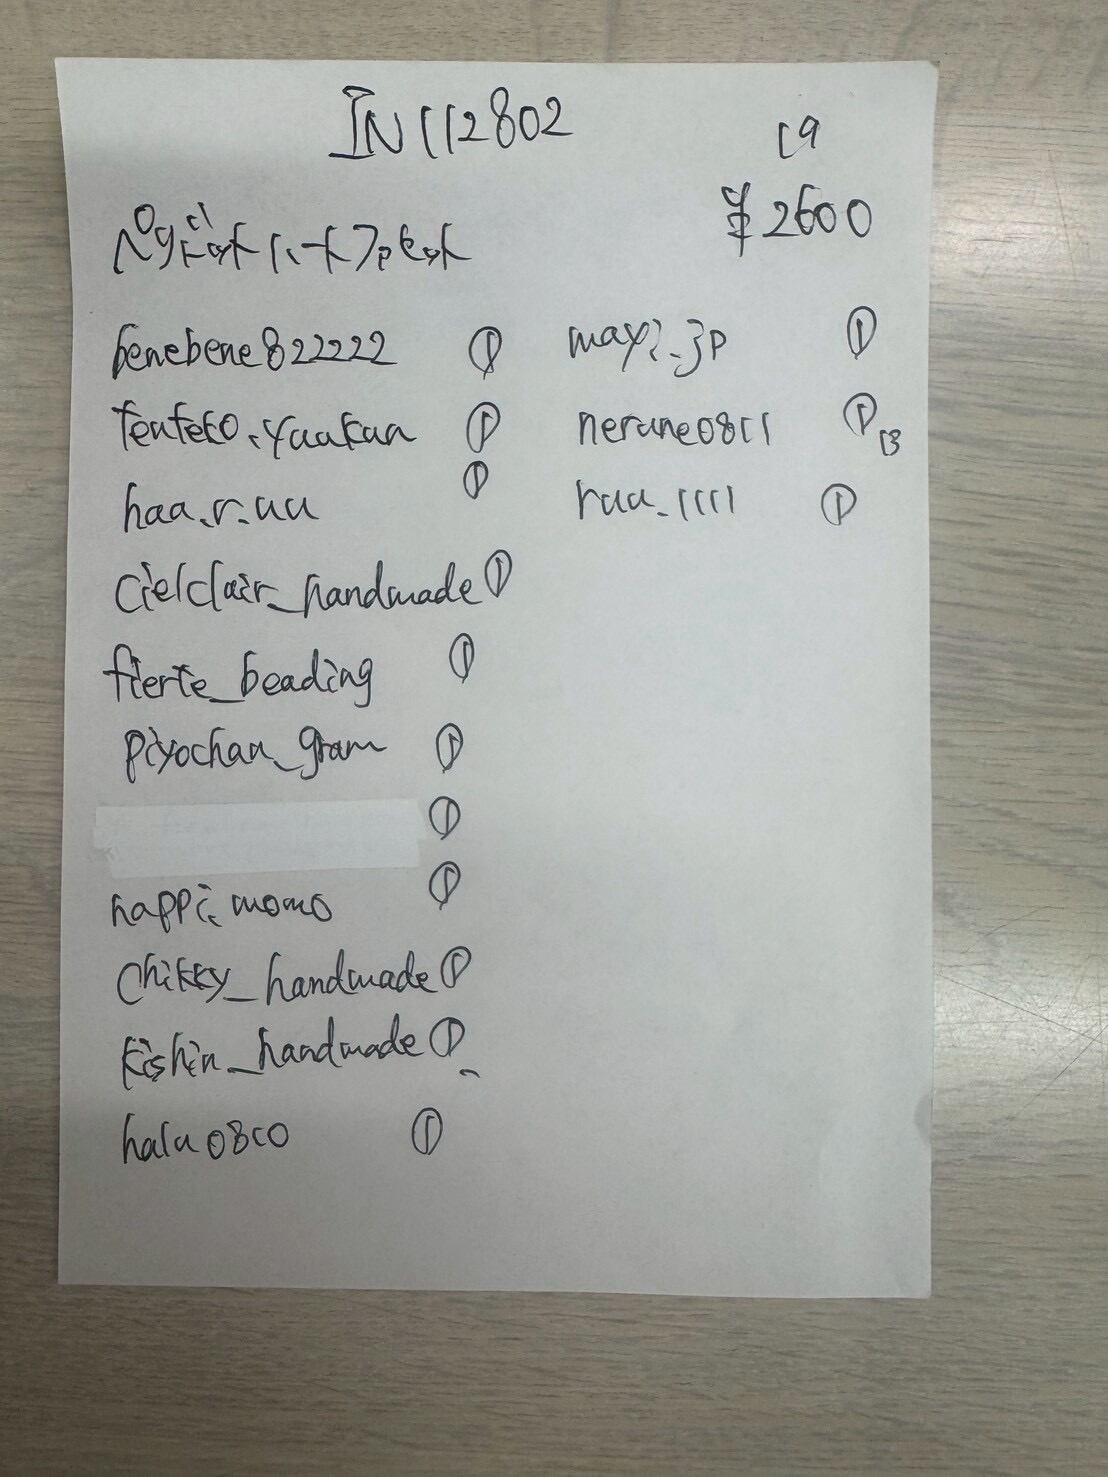 IN112802
19
¥2600
ペリドットハートアソート
benebene822222 ①
tenteko.yuukun ①
haa.r.uu ①
cielclair_handmade ①
fierte_beading ①
piyochan_gram ①
①
happi.momo ①
chikky_handmade ①
kishin_handmade ①
halu0810 ①
may2.jp ①
nerune0811 ① 13
ruu.1111 ①